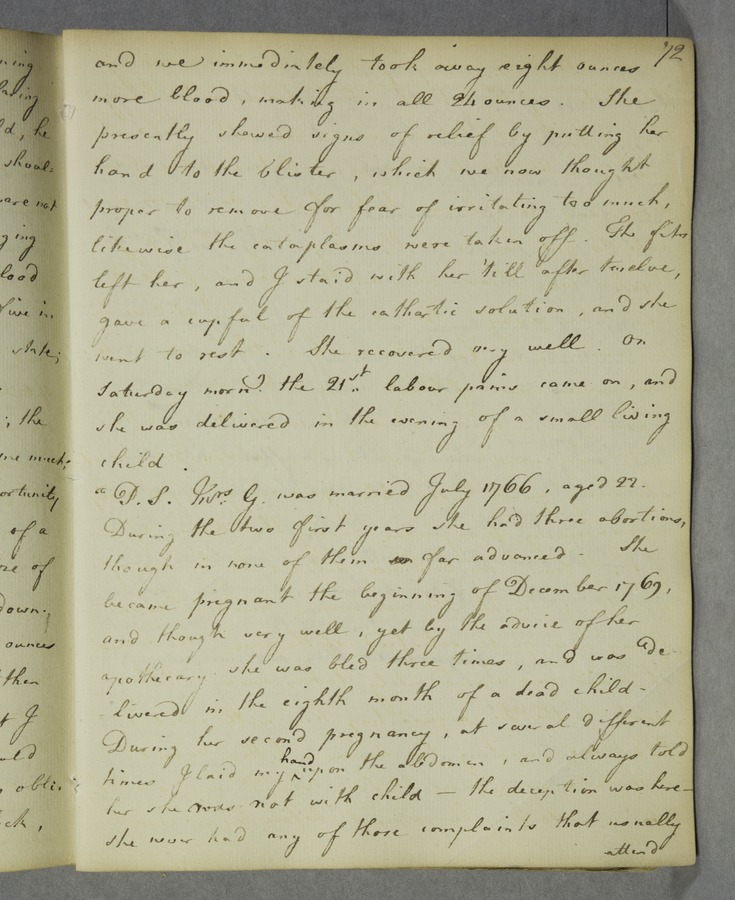 72
and we immediately took away eight ounces
more blood, making in all 24 ounces. She
presently showed signs of relief by putting her
hand to the blister, which we now thought
proper to remove for fear of irritating too much,
likewise the cataplasms were taken off. The fits
left her, and I staid with her 'till after twelve,
gave a cupful of the cathartic solution, and she
went to rest. She recovered very well. On
Saturday morng. the 21st labour pains came on, and
she was delivered in the evening of a small living
child.
"P.S. Mrs. G. was married July 1766, aged 22.
During the two first years she had three abortions,
though in none of them far advanced. She
became pregnant the beginning of December 1769,
and though very well, yet by the advice of her
apothecary she was bled three times, and was "de-
livered in the eighth month of a dead child-
During her second pregnancy, at several different
times I laid my hand upon the abdomen, and always told
her she was not with child — the deception was here-
she never had any of those complaints that usually
attend
ning
ld, he
shoul=
are not
ging
lood
five in
state;
; the
me much;
ortunity
of a
ze of
down.
ounces
then
I
uld